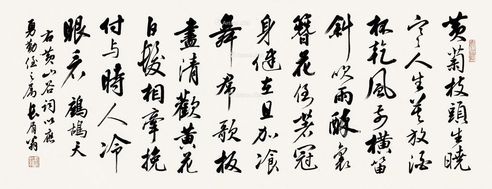 黄菊枝頭生曉
寒人生莫放酒
杯乾風前横笛
斜吹雨醉裏
簪花倒著冠
身健在且加飡
舞裙歌板
盡清歡黄花
白髮相牽挽
付与時人冷
眼看 鷓鴣天
右黄山谷詞以應
勇勤侄之属